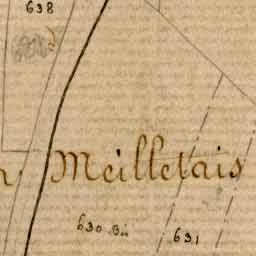 638
Meilletais
630 Bis
631